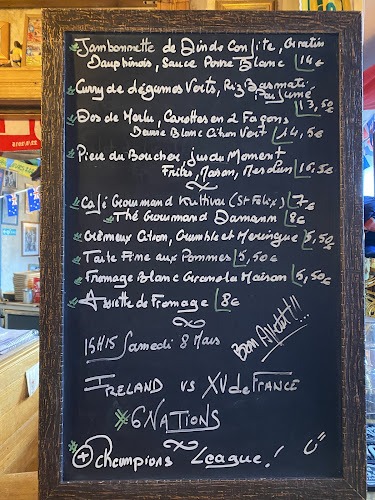 Jambonnette de Dinde Confite, Gratin
Dauphinois, Sauce Porto Blanc 14€
Curry de légumes Verts, Riz Basmati
Parfumé
13,50€
Dos de Merlu, Carottes en 2 Façons
Beurre Blanc Citron Vert 14,5€
Pièce du Boucher, jus du Moment
Frites, Maison, Mesclun 16,5€
Café Gourmand Kultivar (St Félix) 7€
Thé Gourmand Damann 8€
Crémeux Citron, Crumble et Meringue 5,50€
Tarte Fine aux Pommes 5,50€
Fromage Blanc Granola Maison 5,50€
Assiette de Fromage 8€
Bon Appétit!!!
15H15 Samedi 8 Mars
IRELAND VS XV de FRANCE
#6 NATIONS
+ Champions League!